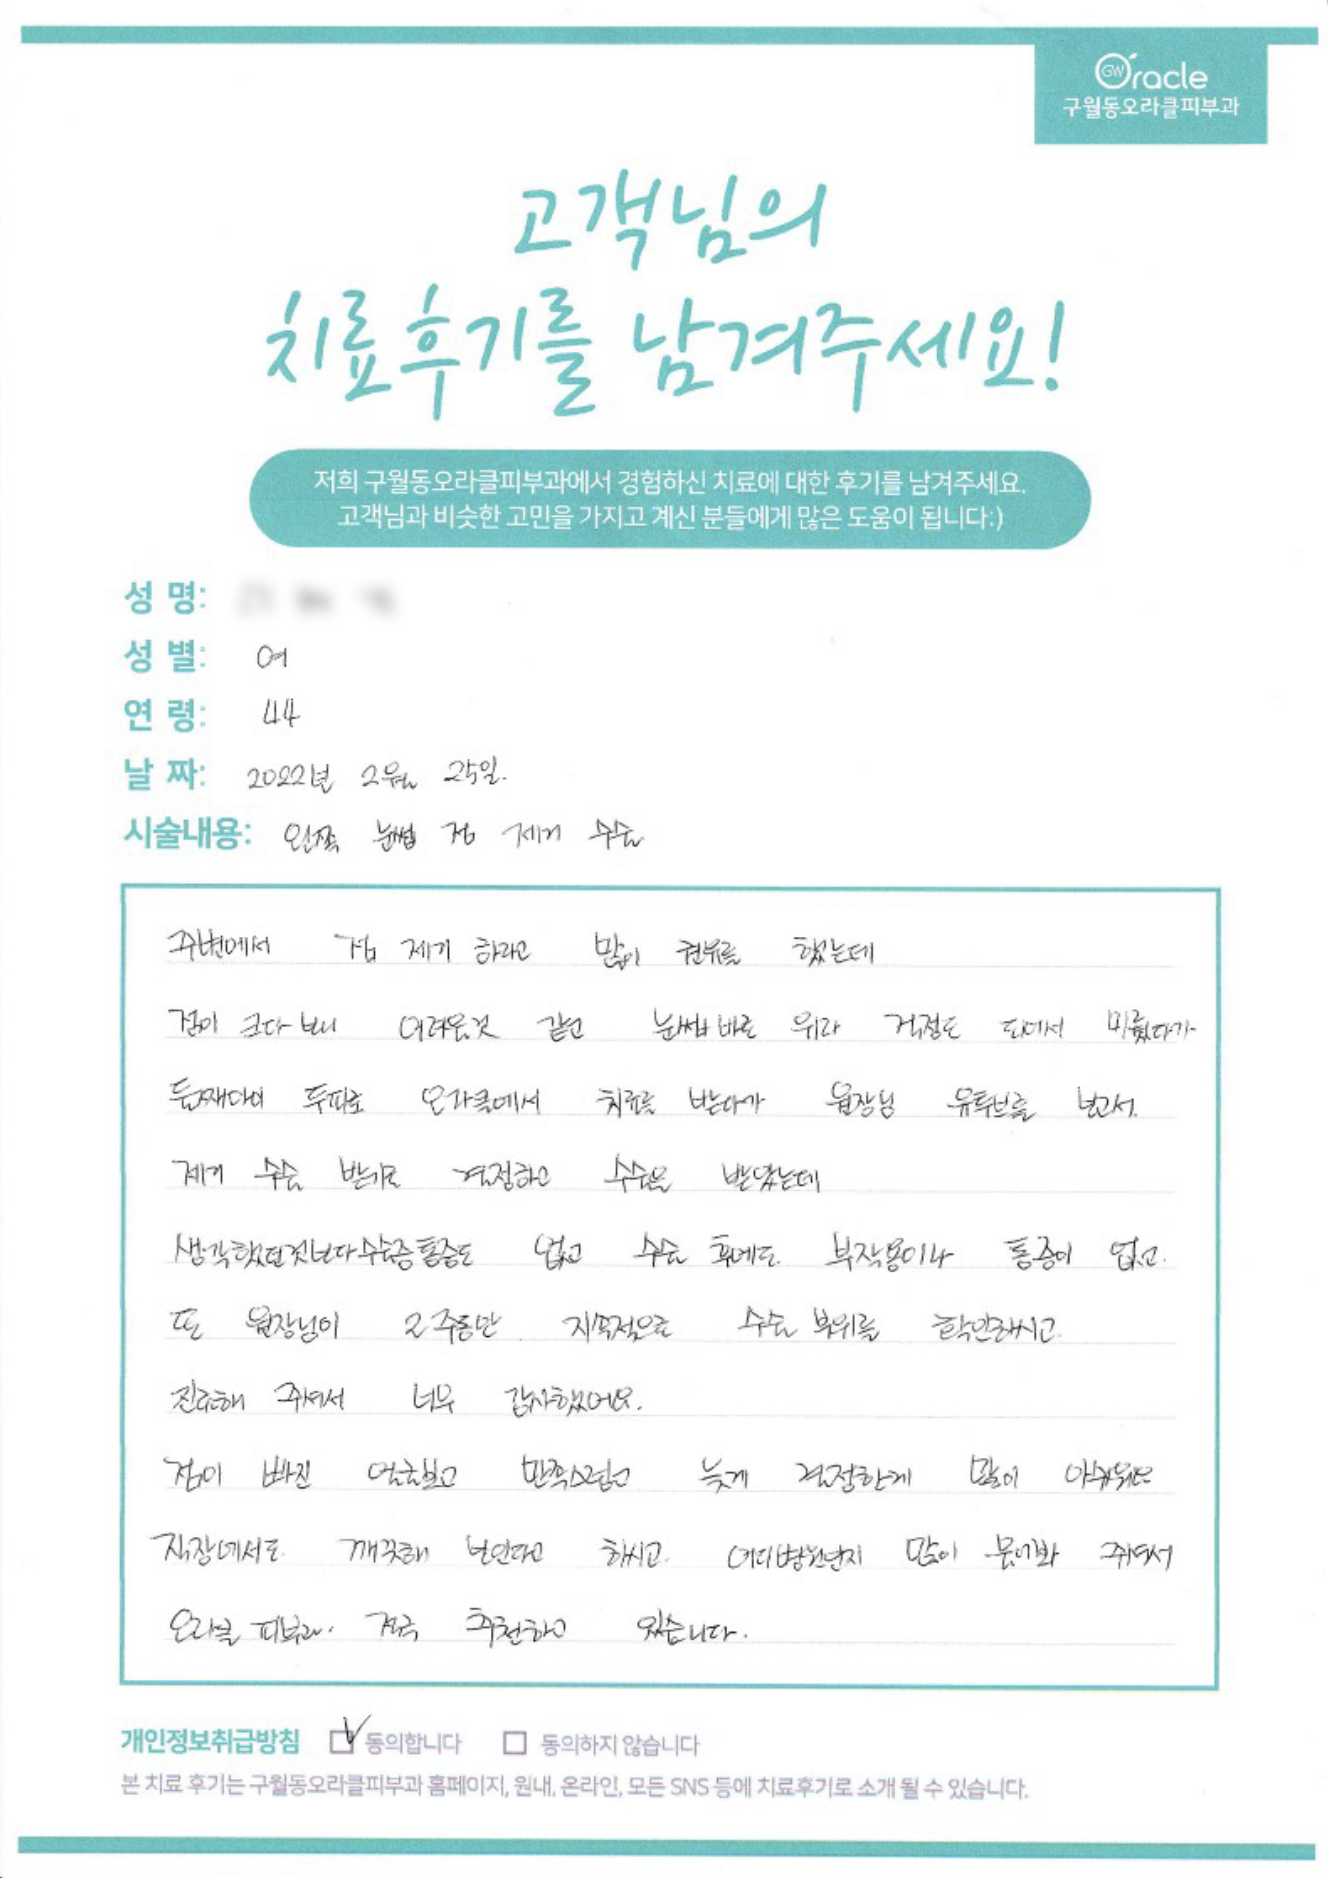 GW Oracle
구월동오라클피부과
고객님의
치료후기를 남겨주세요!
저희 구월동오라클피부과에서 경험하신 치료에 대한 후기를 남겨주세요.
고객님과 비슷한 고민을 가지고 계신 분들에게 많은 도움이 됩니다:)
성 명:
성 별: 여
연 령: 44
날 짜: 2022년 2월 25일.
시술내용: 왼쪽 눈썹 점 제거 수술
주변에서 점 제거 하라고 많이 권유를 했는데
점이 크다 보니 어려운것 같고 눈썹 바로 위라 걱정도 되어서 미뤘다가
둘째다이 두피로 오라클에서 치료를 받다가 원장님 유튜브를 보고서.
제거 수술 받기로 결정하고 수술을 받았는데
생각했던것보다 수술중 통증도 없고 수술 후에도 부작용이나 통증이 없고.
또 원장님이 2주동안 지속적으로 수술 부위를 확인하시고.
진료해 주셔서 너무 감사했어요.
점이 빠진 얼굴보고 만족스럽고 늦게 결정한게 많이 아쉬워요
직장에서도 깨끗해 보인다고 하시고. 어디병원인지 많이 물어봐 주셔서
오라클 피부과. 적극 추천하고 있습니다.
개인정보취급방침 동의합니다 동의하지 않습니다
본 치료 후기는 구월동오라클피부과 홈페이지, 원내, 온라인, 모든 SNS 등에 치료후기로 소개 될 수 있습니다.